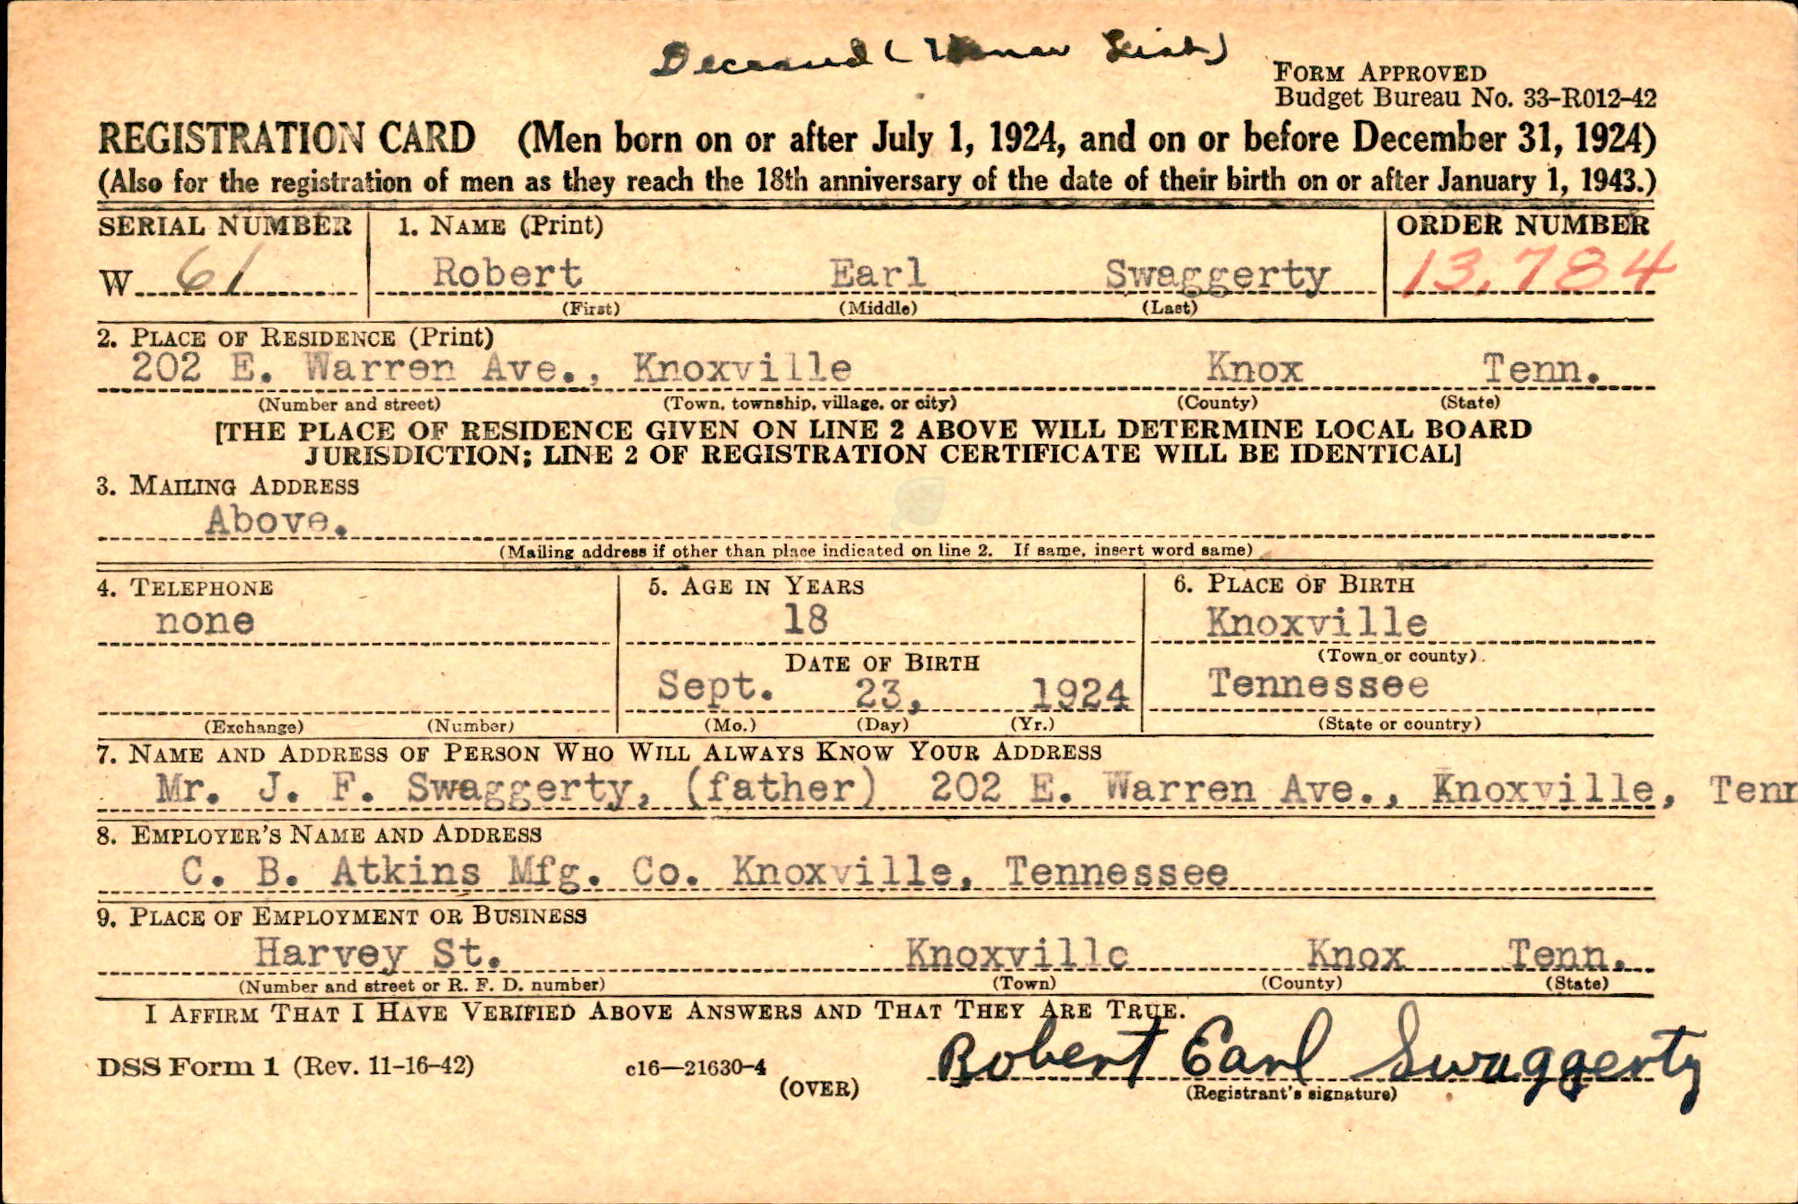 Deceased (Honor List)
FORM APPROVED
Budget Bureau No. 33-R012-42
REGISTRATION CARD (Men born on or after July 1, 1924, and on or before December 31, 1924)
(Also for the registration of men as they reach the 18th anniversary of the date of their birth on or after January 1, 1943.)
SERIAL NUMBER 1. NAME (Print) ORDER NUMBER
W 61 Robert Earl Swaggerty 13,784
(First) (Middle) (Last)
2. PLACE OF RESIDENCE (Print)
202 E. Warren Ave., Knoxville Knox Tenn.
(Number and street) (Town, township, village, or city) (County) (State)
[THE PLACE OF RESIDENCE GIVEN ON LINE 2 ABOVE WILL DETERMINE LOCAL BOARD
JURISDICTION; LINE 2 OF REGISTRATION CERTIFICATE WILL BE IDENTICAL]
3. MAILING ADDRESS
Above.
(Mailing address if other than place indicated on line 2. If same, insert word same)
4. TELEPHONE 5. AGE IN YEARS 6. PLACE OF BIRTH
none 18 Knoxville
DATE OF BIRTH (Town or county)
Sept. 23, 1924 Tennessee
(Exchange) (Number) (Mo.) (Day) (Yr.) (State or country)
7. NAME AND ADDRESS OF PERSON WHO WILL ALWAYS KNOW YOUR ADDRESS
Mr. J. F. Swaggerty, (father) 202 E. Warren Ave., Knoxville, Tenn
8. EMPLOYER'S NAME AND ADDRESS
C. B. Atkins Mfg. Co. Knoxville, Tennessee
9. PLACE OF EMPLOYMENT OR BUSINESS
Harvey St. Knoxville Knox Tenn.
(Number and street or R. F. D. number) (Town) (County) (State)
I AFFIRM THAT I HAVE VERIFIED ABOVE ANSWERS AND THAT THEY ARE TRUE.
DSS Form 1 (Rev. 11-16-42) c16—21630-4 Robert Earl Swaggerty
(OVER) (Registrant's signature)